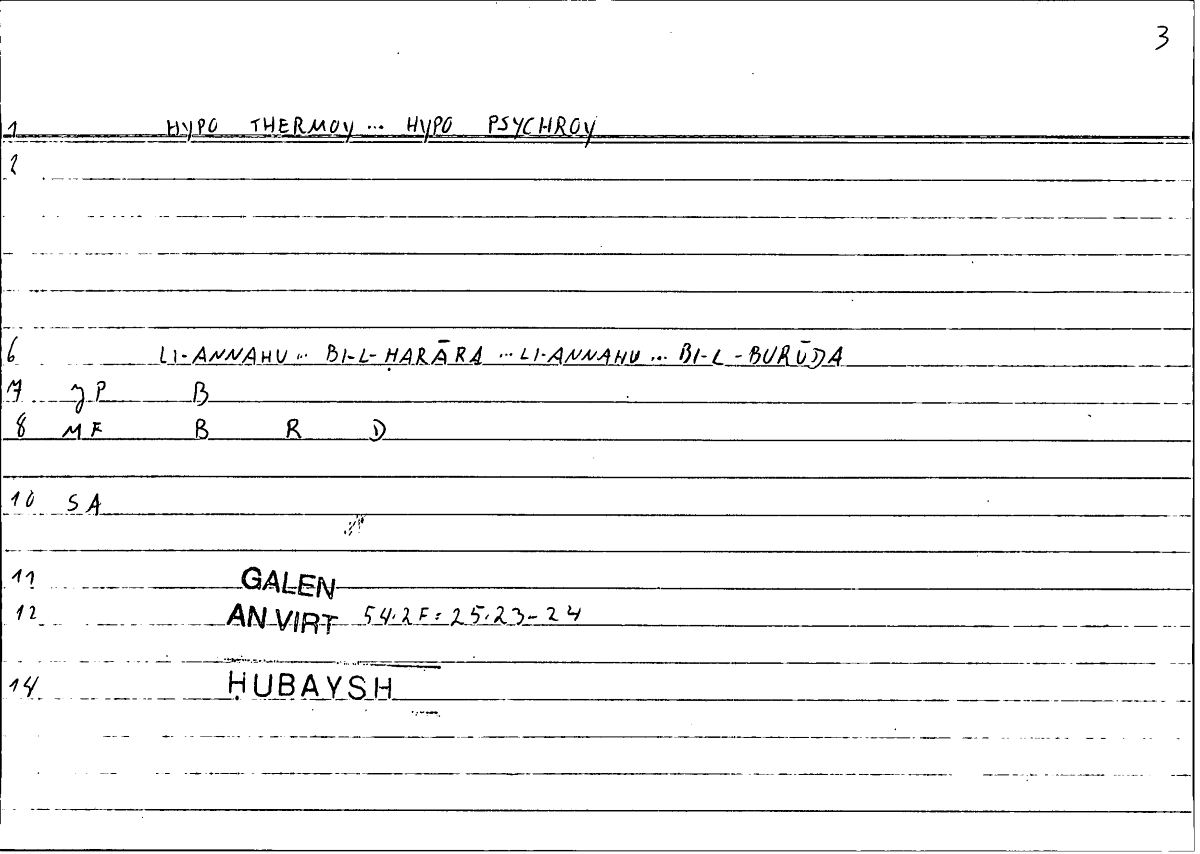 3
1 HYPO THERMOY ... HYPO PSYCHROY
2
6 LI-ANNAHU ... BI-L-ḤARĀRA ... LI-ANNAHU ... BI-L-BURŪDA
7 JP B
8 MF B R D
10 SA
11 GALEN
12 AN VIRT 54.2F = 25.23-24
14 ḤUBAYSH